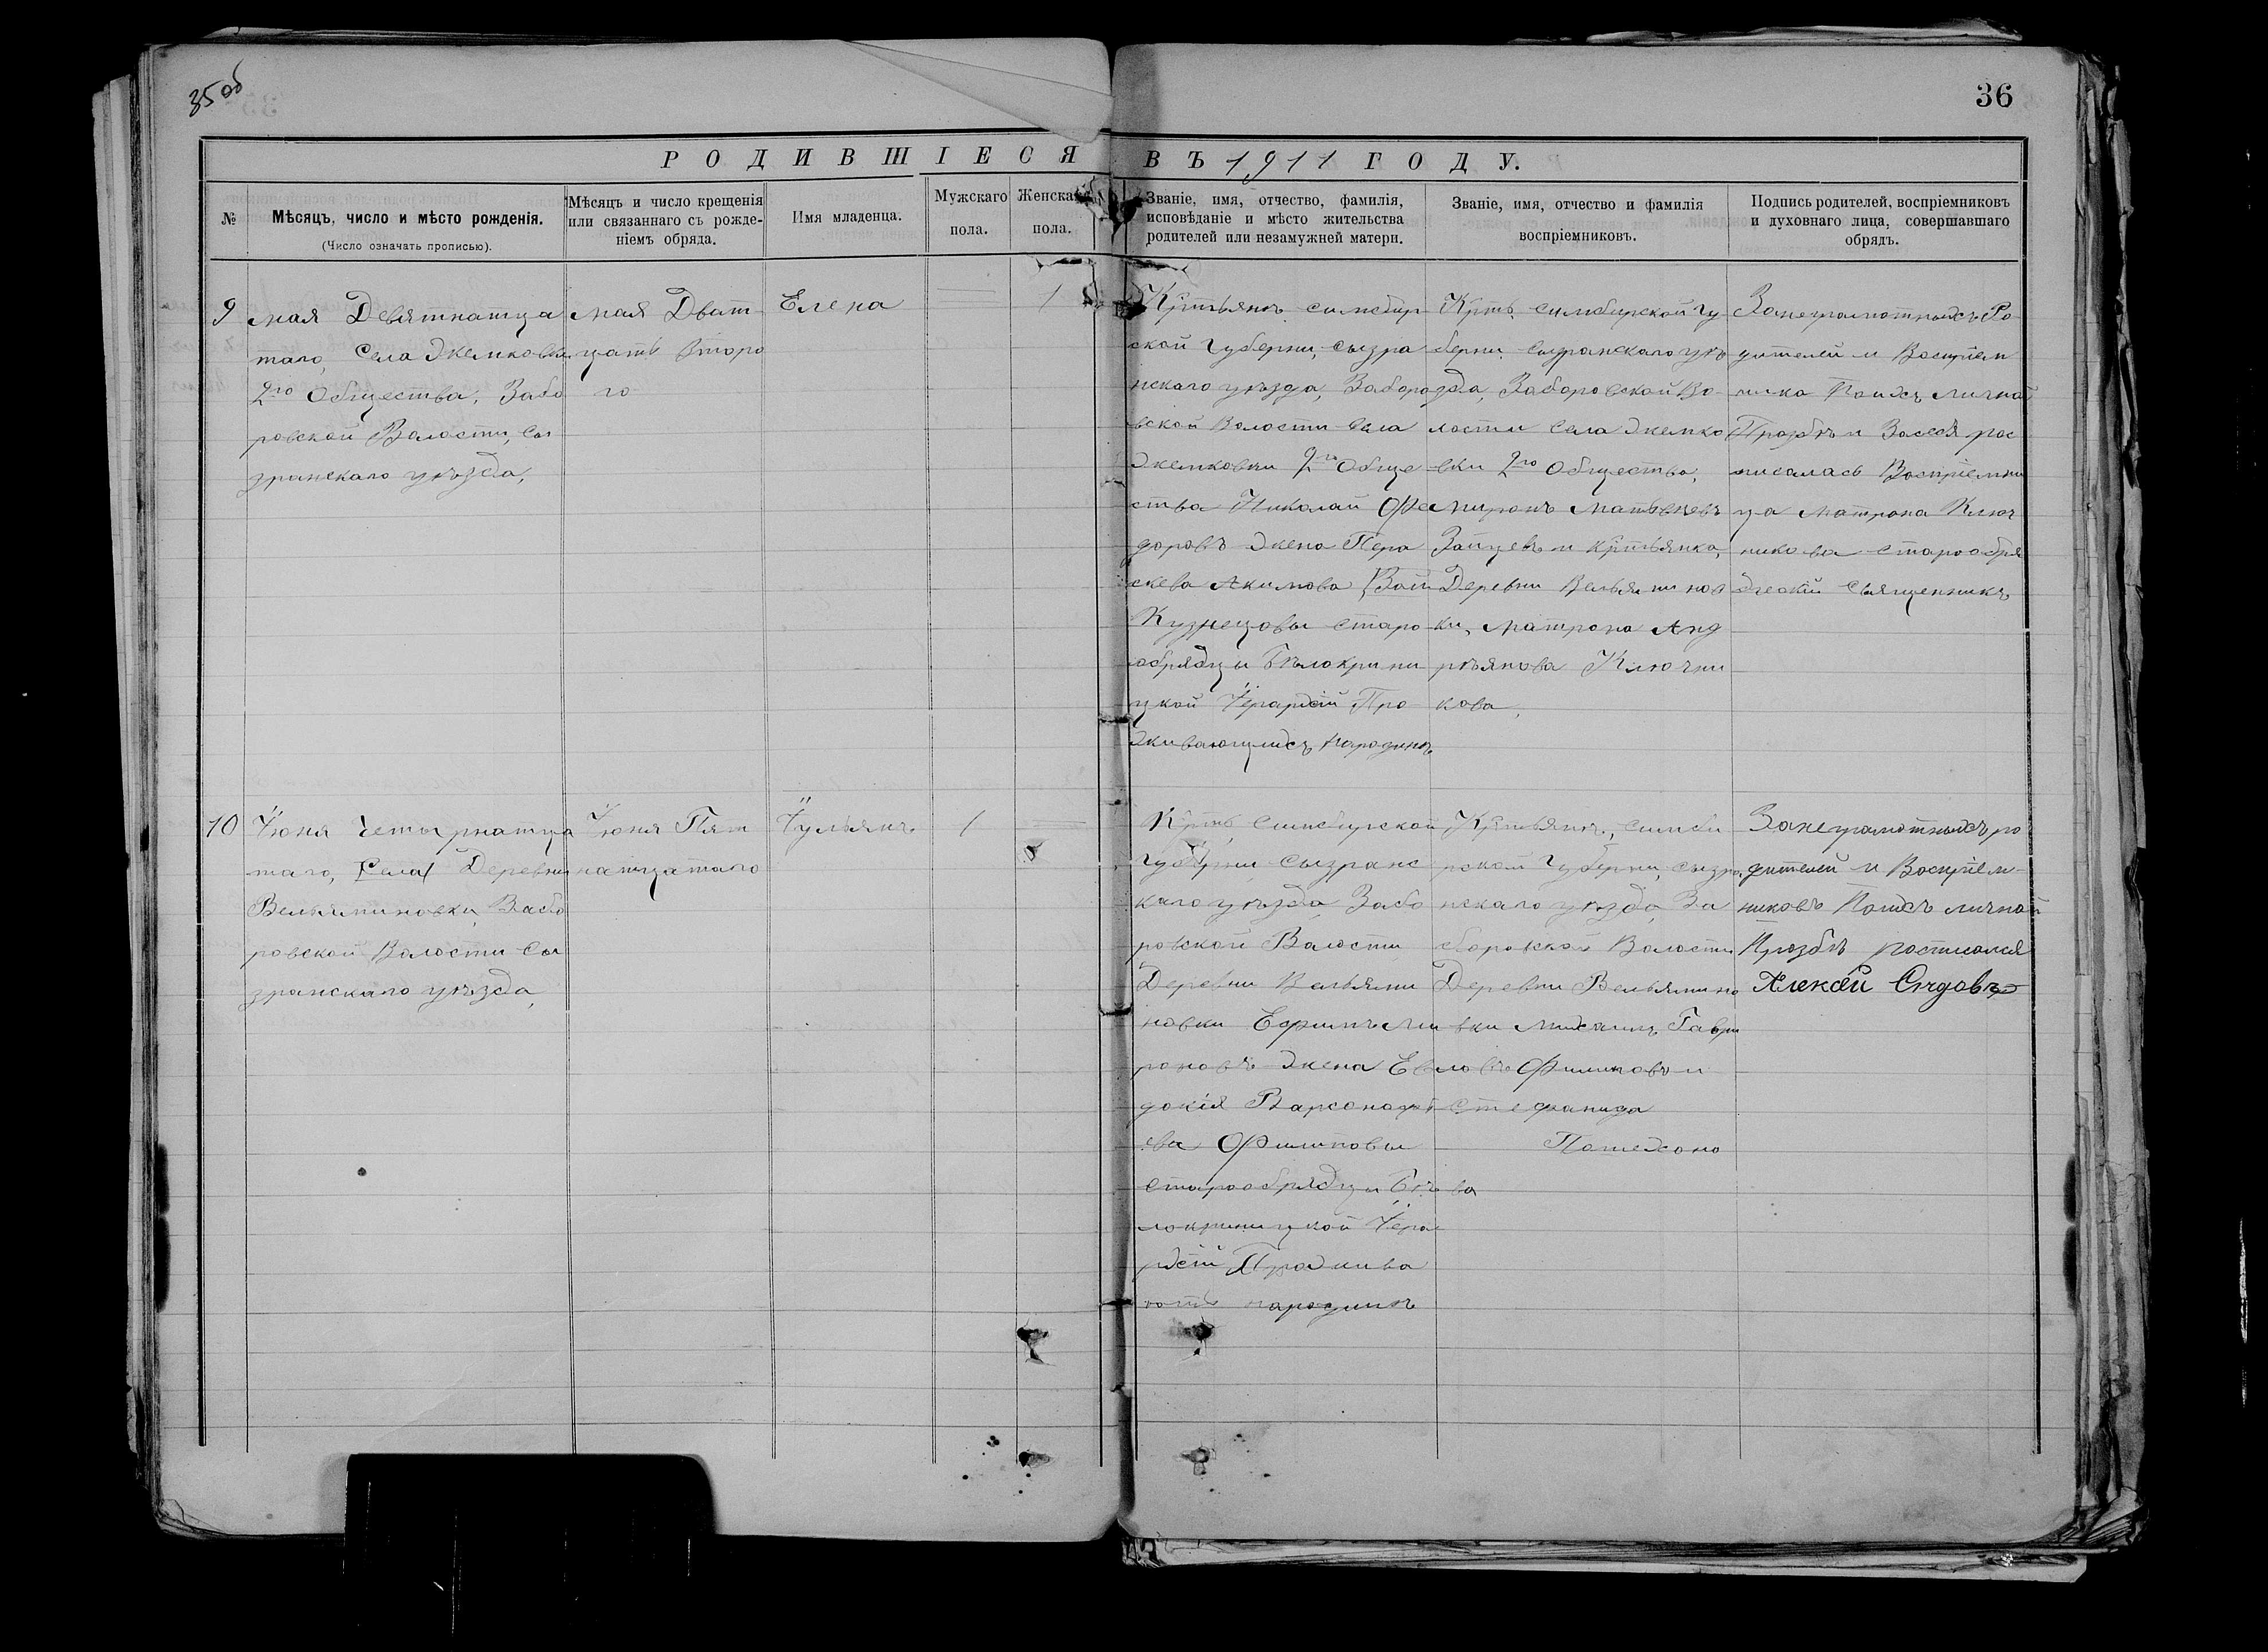 35 об
36
РОДИВШІЕСЯ ВЪ 1911 ГОДУ.
№
Мѣсяцъ, число и мѣсто рожденія.
(Число означать прописью).
Мѣсяцъ и число крещенія
или связаннаго съ рожде-
ніемъ обряда.
Имя младенца.
Мужскаго
пола.
Женскаго
пола.
Званіе, имя, отчество, фамилія,
исповѣданіе и мѣсто жительства
родителей или незамужней матери.
Званіе, имя, отчество и фамилія
воспріемниковъ.
Подпись родителей, воспріемниковъ
и духовнаго лица, совершавшаго
обрядъ.
9
мая Девятнатца
таго, села Жемковки
2го Общества, Забо
ровской Волости, Сы
зранскаго уѣзда,
мая Дват
цать второ
го
Елена
1
Крѣтьянъ симбир
ской Губерни, сызра
нскаго уѣзда, Заборо
вской Волости Села
Жемковки 2го Обще
ства Николай Фе
доровъ жена Пера
скева Акимова
Кузнецовы старо
обрядцы Бѣлокрини
цкой Іерархіи Про
живающихъ народинѣ
Крть. симбирской Гу
берни. Сызранскаго уѣ
зда, Заборовской Во-
лости Села Жемко
вки 2го Общества,
Миронъ Матвѣевъ
Зайцевъ и крѣтьянка,
Деревни Вельяминов
ки, Матрона Анд
реянова Ключни
кова,
Занеграмотныхъ Ро
дителей и Восприем
ника Поихъ личной
Прозбѣ и Засебя рос
писалась Восприемни
ца Матрона Ключ
никова старообря
дческій священникъ
10
Іюня четырнатца
таго, Села Деревни
Вельяминовки Забо
ровской Волости Сы
зранскаго уѣзда,
Іюня Пят
натцатаго
Іульянъ
1
Крть Симбирской
Губерни Сызранс
каго уѣзда Забо
ровской Волости
Деревни Вельями
новки Ефимъ Ми
роновъ жена Ев
докія Варсонофі
ева Филиповы
старообрядцы Бѣ
локриницкой Іера
рхіи Прожива
ютъ народинѣ
Крѣтьянъ, симби
рской Губерни, сызра
нскаго уѣзда За
боровской Волости
Деревни Вельямино
вки Михаилъ Гаври
ловъ Филиповъ и
Стефанида
Пошехоно
ва
Занеграмотныхъ ро
дителей и Восприем-
никовъ Поихъ личной
Прозбѣ росписался
Алексѣй